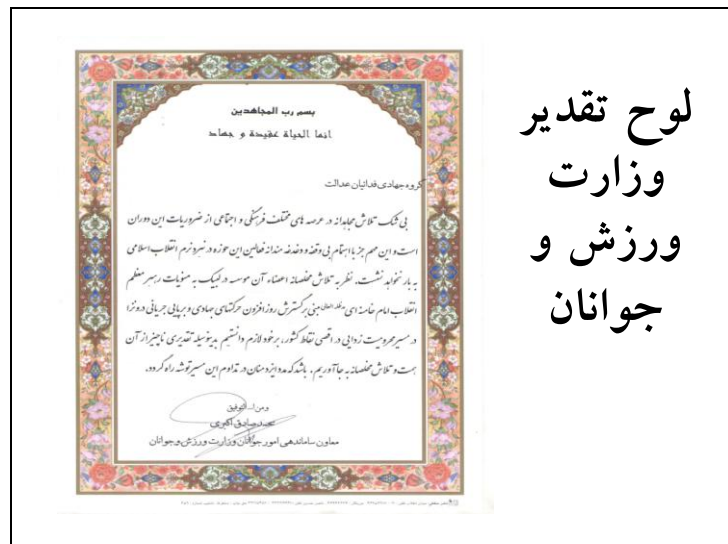 لوح تقدیر
وزارت
ورزش و
جوانان
بسم رب المجاهدین
انما الحیاة عقیدة و جهاد
گروه جهادی فدائیان عدالت
بی شک تلاش مجاهدانه در عرصه های مختلف فرهنگی و اجتماعی از ضروریات این دوران
است و این مهم جز با اهتمام بی وقفه و دغدغه مندانه فعالین این حوزه در نبرد نرم انقلاب اسلامی
به بار نخواهد نشست، نظر به تلاش مخلصانه اعضاء آن موسسه در لبیک به منویات رهبر معظم
انقلاب امام خامنه ای مبنی بر گسترش روزافزون حرکتهای جهادی و برپایی جریانی درونزا
در مسیر محرومیت زدایی در اقصی نقاط کشور، بر خود لازم دانستیم بدینوسیله تقدیری ناچیز از آن
همت و تلاش مخلصانه به جا آوریم. باشد که مدد ایزد منان در تداوم این مسیر توشه راه گردد.
و من الله التوفیق
محمدصادق اکبری
معاون ساماندهی امور جوانان وزارت ورزش و جوانان